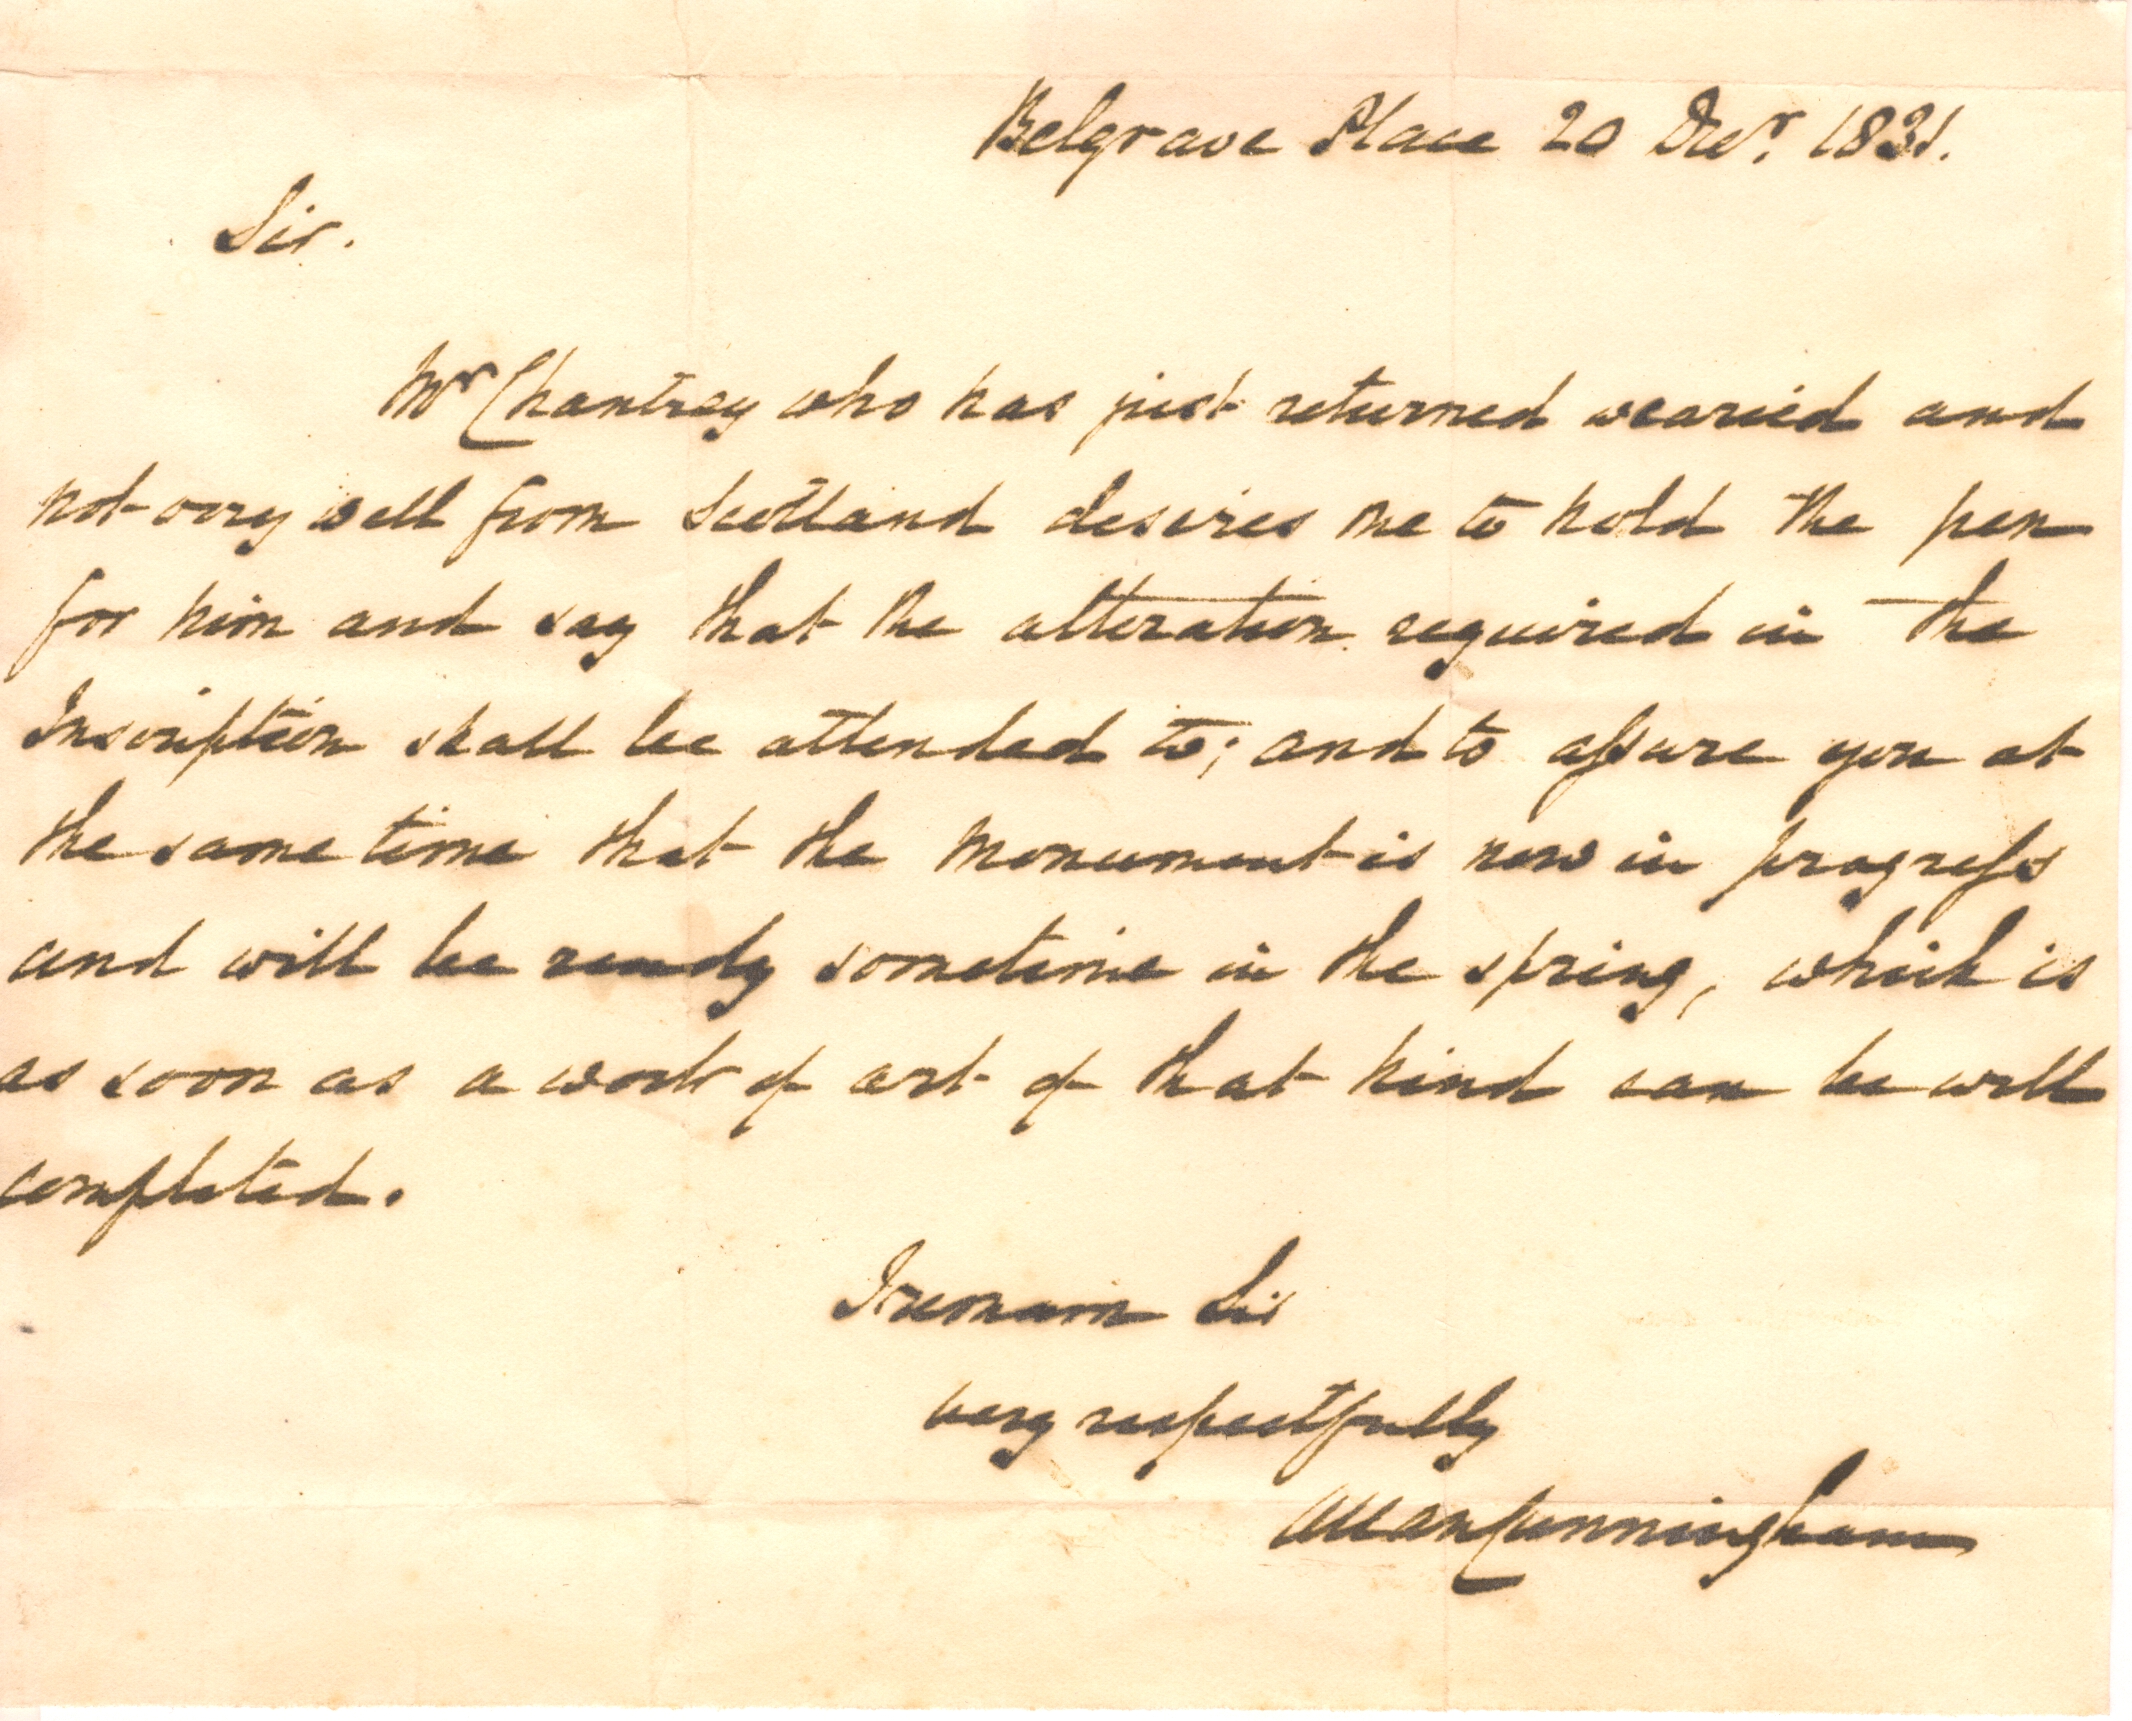 Belgrave Place 20 Decr. 1831.
Sir.
Mr Chantrey who has just returned wearied and
not very well from Scotland desires me to hold the pen
for him and say that the alteration required in the
Inscription shall be attended to; and to aſsure you at
the same time that the monument is now in progreſs
and will be ready sometime in the spring, which is
as soon as a work of art of that kind can be well
completed.
I remain Sir
very respectfully
Allan Cunningham